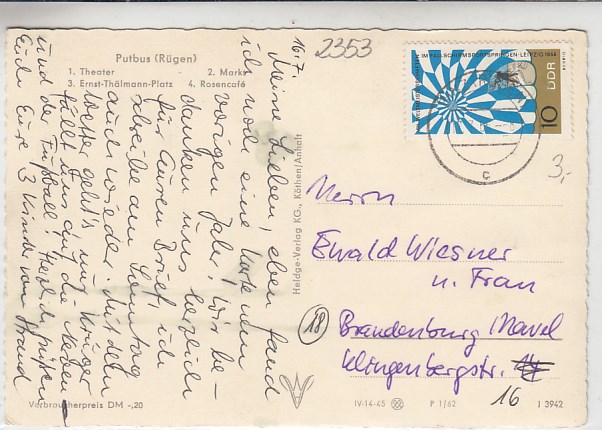 Putbus (Rügen)
1. Theater 2. Markt
3. Ernst-Thälmann-Platz 4. Rosencafé
16.7.
Meine Lieben, eben fand
ich noch eine Karte vom
vorigen Jahr. Wir be-
danken uns herzlich
für Euren Brief, ich
schreibe am Sonntag
auch wieder. Mit dem
Wetter geht's nur
fällt uns auf die
und der Fußball! Herzlich grüßen
Euch Eure 3 Kinder vom Strand
Verbraucherpreis DM -,20
Heldge-Verlag KG., Köthen/Anhalt
2353
LEIPZIG 1966
DDR
10
C
3,-
Herrn
Ewald Wiesner
u. Frau
18 Brandenburg Havel
Klingenbergstr.
16
IV-14-45 P 1/62 I 3942